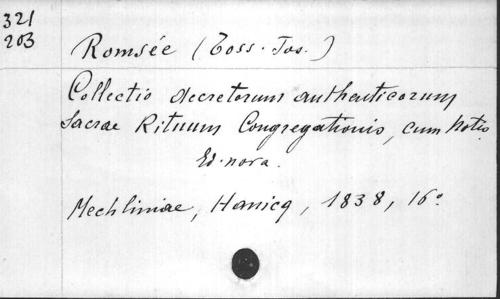 321
203
Romsée (Toss. Jos.)
Collectio decretorum authenticorum
Sacrae Rituum Congregationis, cum Notis
Ed. nova.
Mechliniae, Hanicq, 1838, 16º